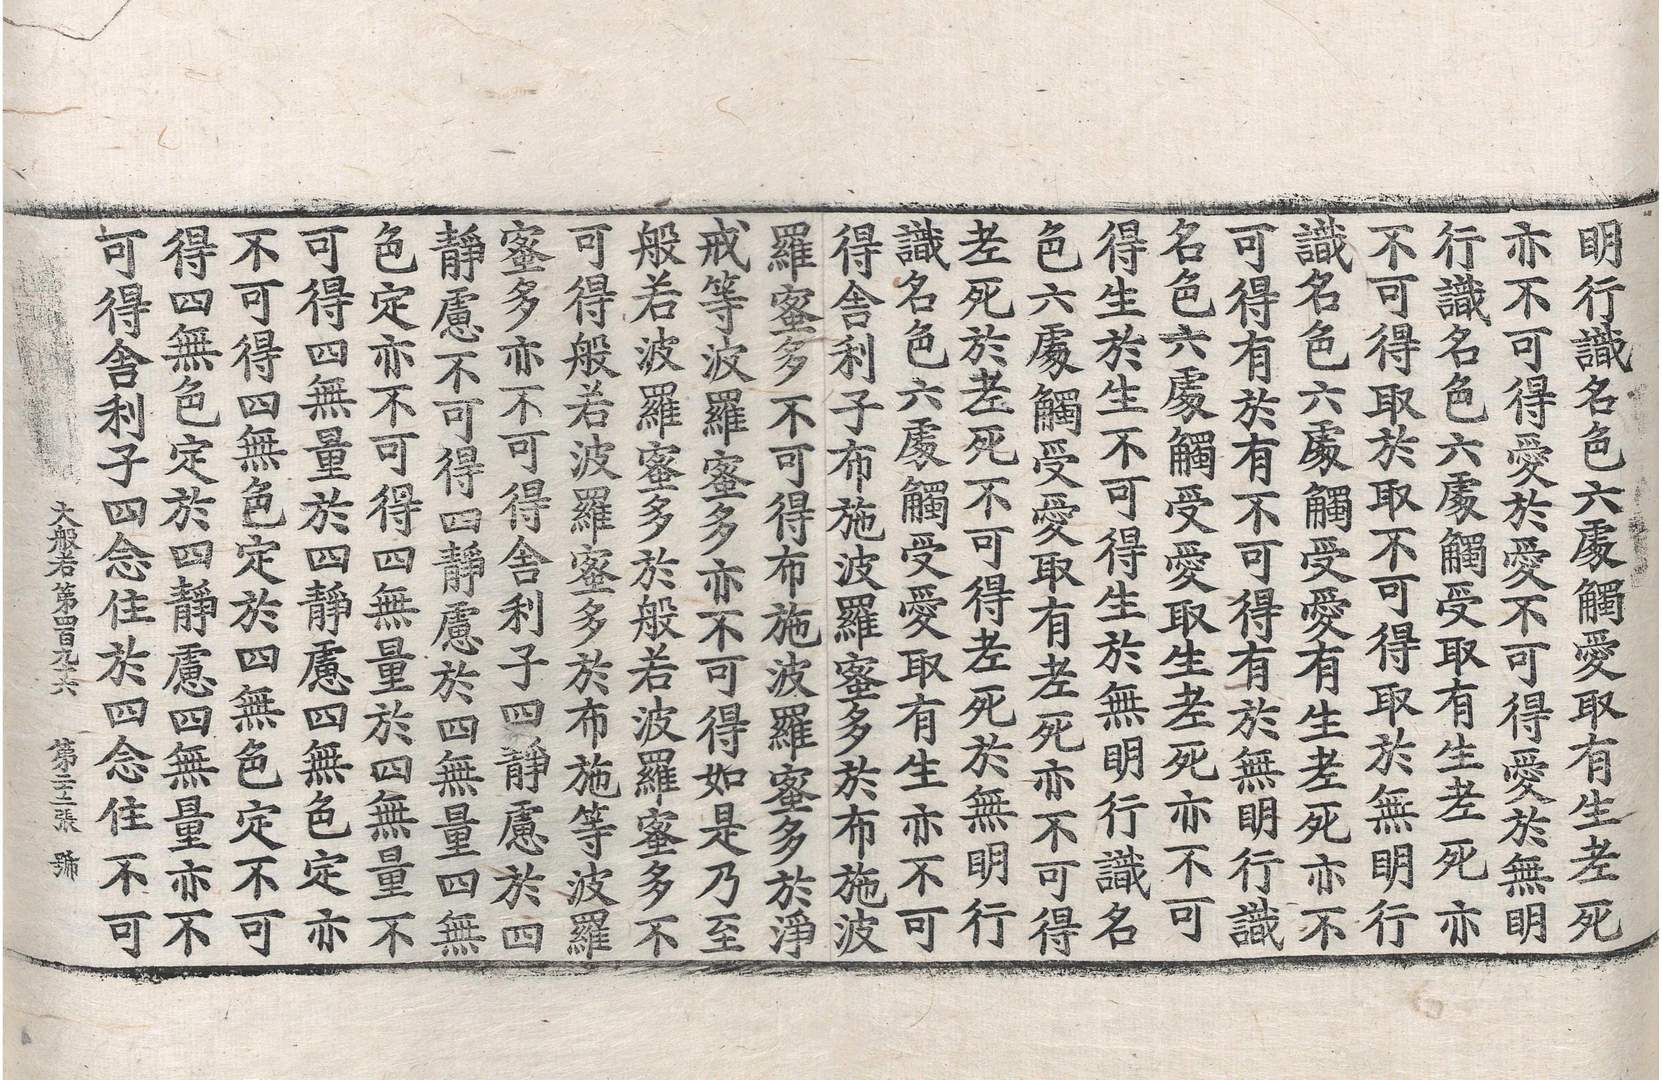 明行識名色六處觸愛取有生老死
亦不可得愛於愛不可得愛於無明
行識名色六處觸受取有生老死亦
不可得取於取不可得取於無明行
識名色六處觸受愛有生老死亦不
可得有於有不可得有於無明行識
名色六處觸受愛取生老死亦不可
得生於生不可得生於無明行識名
色六處觸受愛取有老死亦不可得
老死於老死不可得老死於無明行
識名色六處觸受愛取有生亦不可
得舍利子布施波羅蜜多於布施波
羅蜜多不可得布施波羅蜜多於淨
戒等波羅蜜多亦不可得如是乃至
般若波羅蜜多於般若波羅蜜多不
可得般若波羅蜜多於布施等波羅
蜜多亦不可得舍利子四靜慮於四
靜慮不可得四靜慮於四無量四無
色定亦不可得四無量於四無量不
可得四無量於四靜慮四無色定亦
不可得四無色定於四無色定不可
得四無色定於四靜慮四無量亦不
可得舍利子四念住於四念住不可
大般若第四百九十六 第二十二張